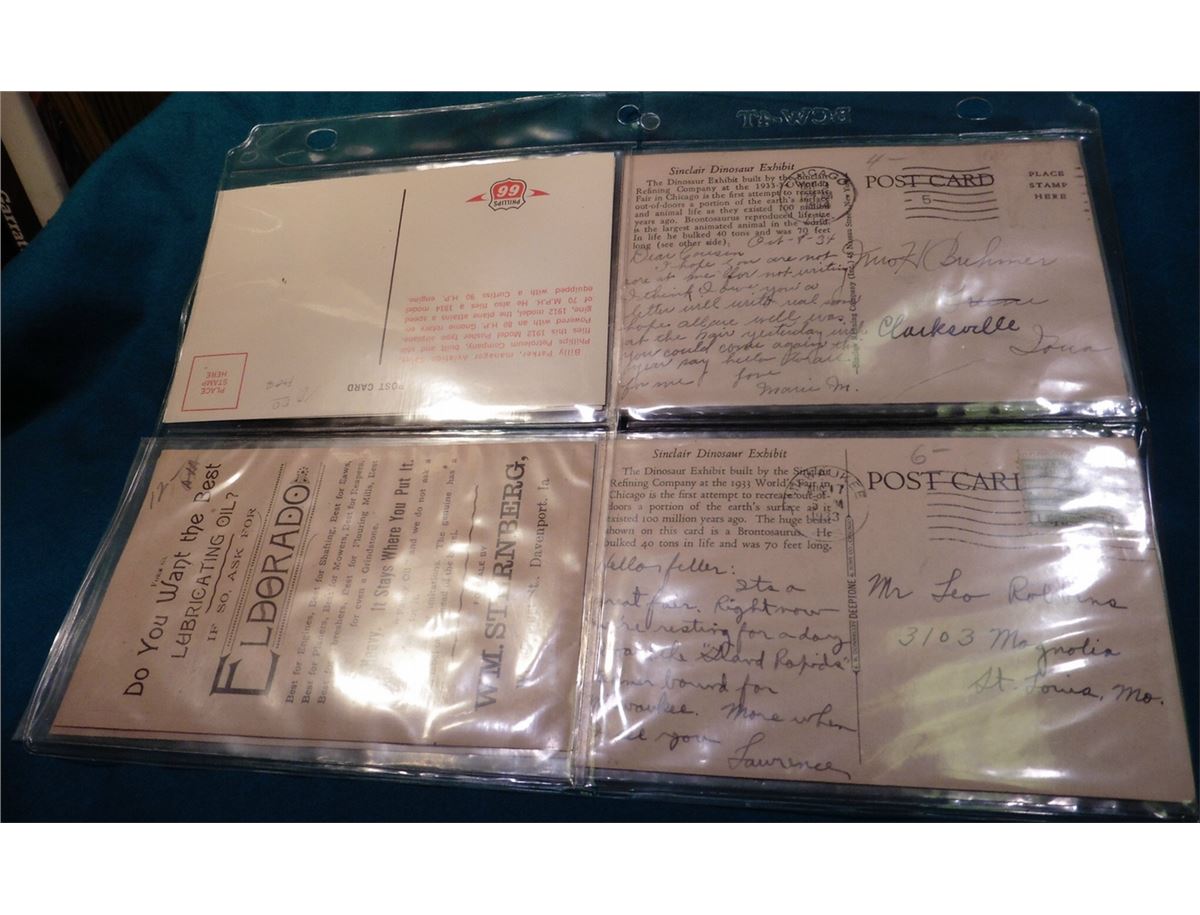 Garrat
PHILLIPS
66
Billy Parker, manager Aviation
Phillips Petroleum Company, built and still
flies this 1912 Model Pusher type airplane.
Powered with an 80 H.P. Gnome rotary en-
gine, 1912 model, the plane attains a speed
of 70 M.P.H. He also flies a 1914 model
equipped with a Curtiss 90 H.P. engine.
POST CARD
PLACE
STAMP
HERE
Sinclair Dinosaur Exhibit
The Dinosaur Exhibit built by the Sinclair
Refining Company at the 1933-34 World's
Fair in Chicago is the first attempt to recreate
out-of-doors a portion of the earth's surface
and animal life as they existed 100 million
years ago. Brontosaurus reproduced life-size
is the largest animated animal in the world.
In life he bulked 40 tons and was 70 feet
long (see other side).
Oct-9-34
Dear Cousin
I hope you are not
sore at me for not writing
I think I owe you a
letter will write real soon
hope all are well was
at the fair yesterday wish
you could come again this
year say hello to all
for me love
Marie M.
4-
POST CARD
5
PLACE
STAMP
HERE
CHICAGO
Buhmer
Clarksville
Iowa
Do You Want the Best
LUBRICATING OIL?
IF SO, ASK FOR
ELDORADO
Best for Engines, Best for Shafting, Best for Saws,
Best for Planers, Best for Mowers, Best for Reapers,
Best for Threshers, Best for Flouring Mills, Best
for even a Grindstone.
It Stays Where You Put It.
and we do not ask a
imitations. The genuine has a
FOR SALE BY
WM. STERNBERG,
St., Davenport, Ia.
Sinclair Dinosaur Exhibit
The Dinosaur Exhibit built by the Sinclair
Refining Company at the 1933 World's Fair in
Chicago is the first attempt to recreate out-of-
doors a portion of the earth's surface as it
existed 100 million years ago. The huge beast
shown on this card is a Brontosaurus. He
bulked 40 tons in life and was 70 feet long.
Hello feller:
Its a
great fair. Right now
we're resting for a day
on the "Grand Rapids"
steamer bound for
Milwaukee. More when
I see you
Lawrence
DEEPTONE
6-
POST CARD
Mr Leo Robbins
3103 Magnolia
St. Louis, Mo.